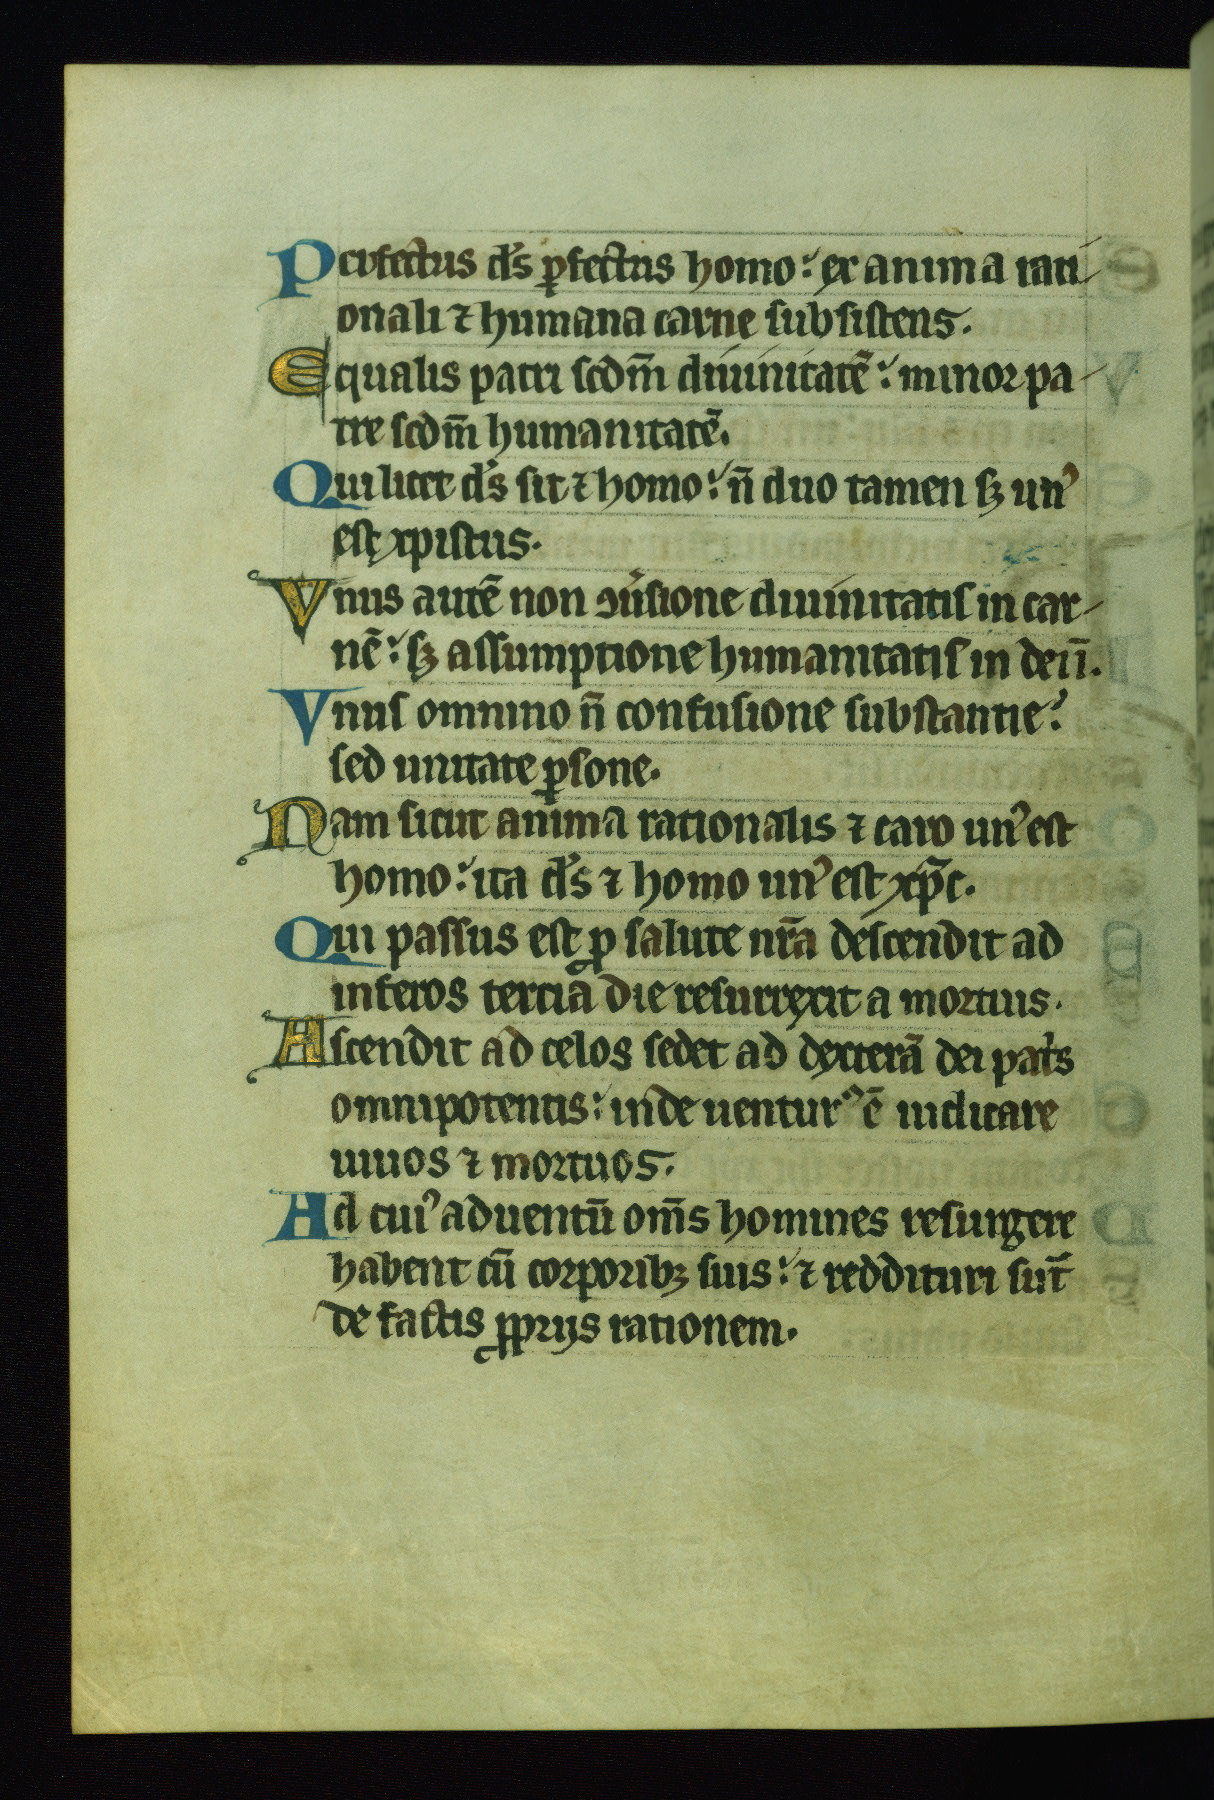 Perfectus d̅s ꝑfectus homo: ex anima rati
onali ⁊ humana carne subsistens.
Equalis patri scd̅m diuinitatē: minor pa
tre scd̅m humanitatē.
Qui licet d̅s sit ⁊ homo: n̄ duo tamen sꝫ unꝰ
est xpistus.
Vnus autē non ꝯu̅sione diuinitatis in car
nē: sꝫ assumptione humanitatis in deū.
Vnus omnino n̄ confusione substantie:
sed unitate ꝑsone.
Nam sicut anima rationalis ⁊ caro unꝰ est
homo: ita d̅s ⁊ homo unꝰ est xp̅c.
Qui passus est ꝓ salute nr̅a descendit ad
inferos tercia die resurrexit a mortuis.
Ascendit ad celos sedet ad dexterā dei pat̅s
omnipotentis: inde uenturꝰ ē iudicare
uiuos ⁊ mortuos.
Ad cuiꝰ aduentū om̅s homines resurgere
habent cū corporibꝫ suis: ⁊ reddituri sūt
de factis ꝓprijs rationem.